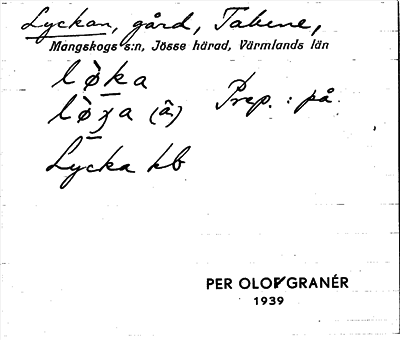 Lyckan, gård, Tabene,
Mangskogs s:n, Jösse härad, Värmlands län
lø̀ka
lø̀ʒa (â) Prep.: på.
Lycka hb
PER OLOF GRANÉR
1939